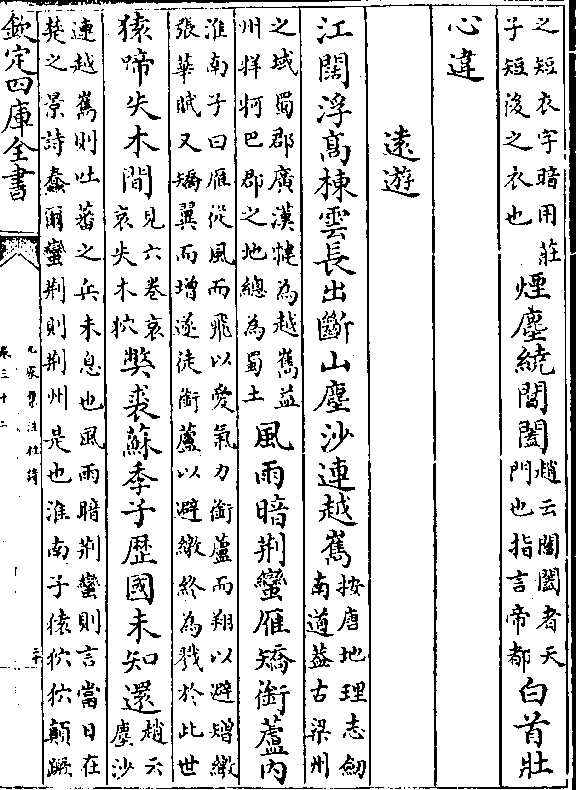 之短衣字暗用莊
子短後之衣也
煙塵繞閶闔
趙云閶闔者天
門也指言帝都
白首壯
心違
遠遊
江闊浮高棟雲長出斷山塵沙連越嶲
按唐地理志劒
南道葢古梁州
之域蜀郡廣漢犍為越嶲益
州牂牁巴郡之地總為蜀土
風雨暗荆蠻雁矯銜蘆内
淮南子曰雁從風而飛以愛氣力銜蘆而翔以避矰繳
張華賦又矯翼而增逝徒銜蘆以避繳終為戮於此世
猿啼失木間
見六卷哀
哀失木狖
獘裘蘇季子歴國未知還
趙云
塵沙
連越嶲則吐蕃之兵未息也風雨暗荆蠻則言當日在
楚之景詩蠢爾蠻荆則荆州是也淮南子猿狖狖顛蹶
欽定四庫全書
九家集注杜詩
卷三十二